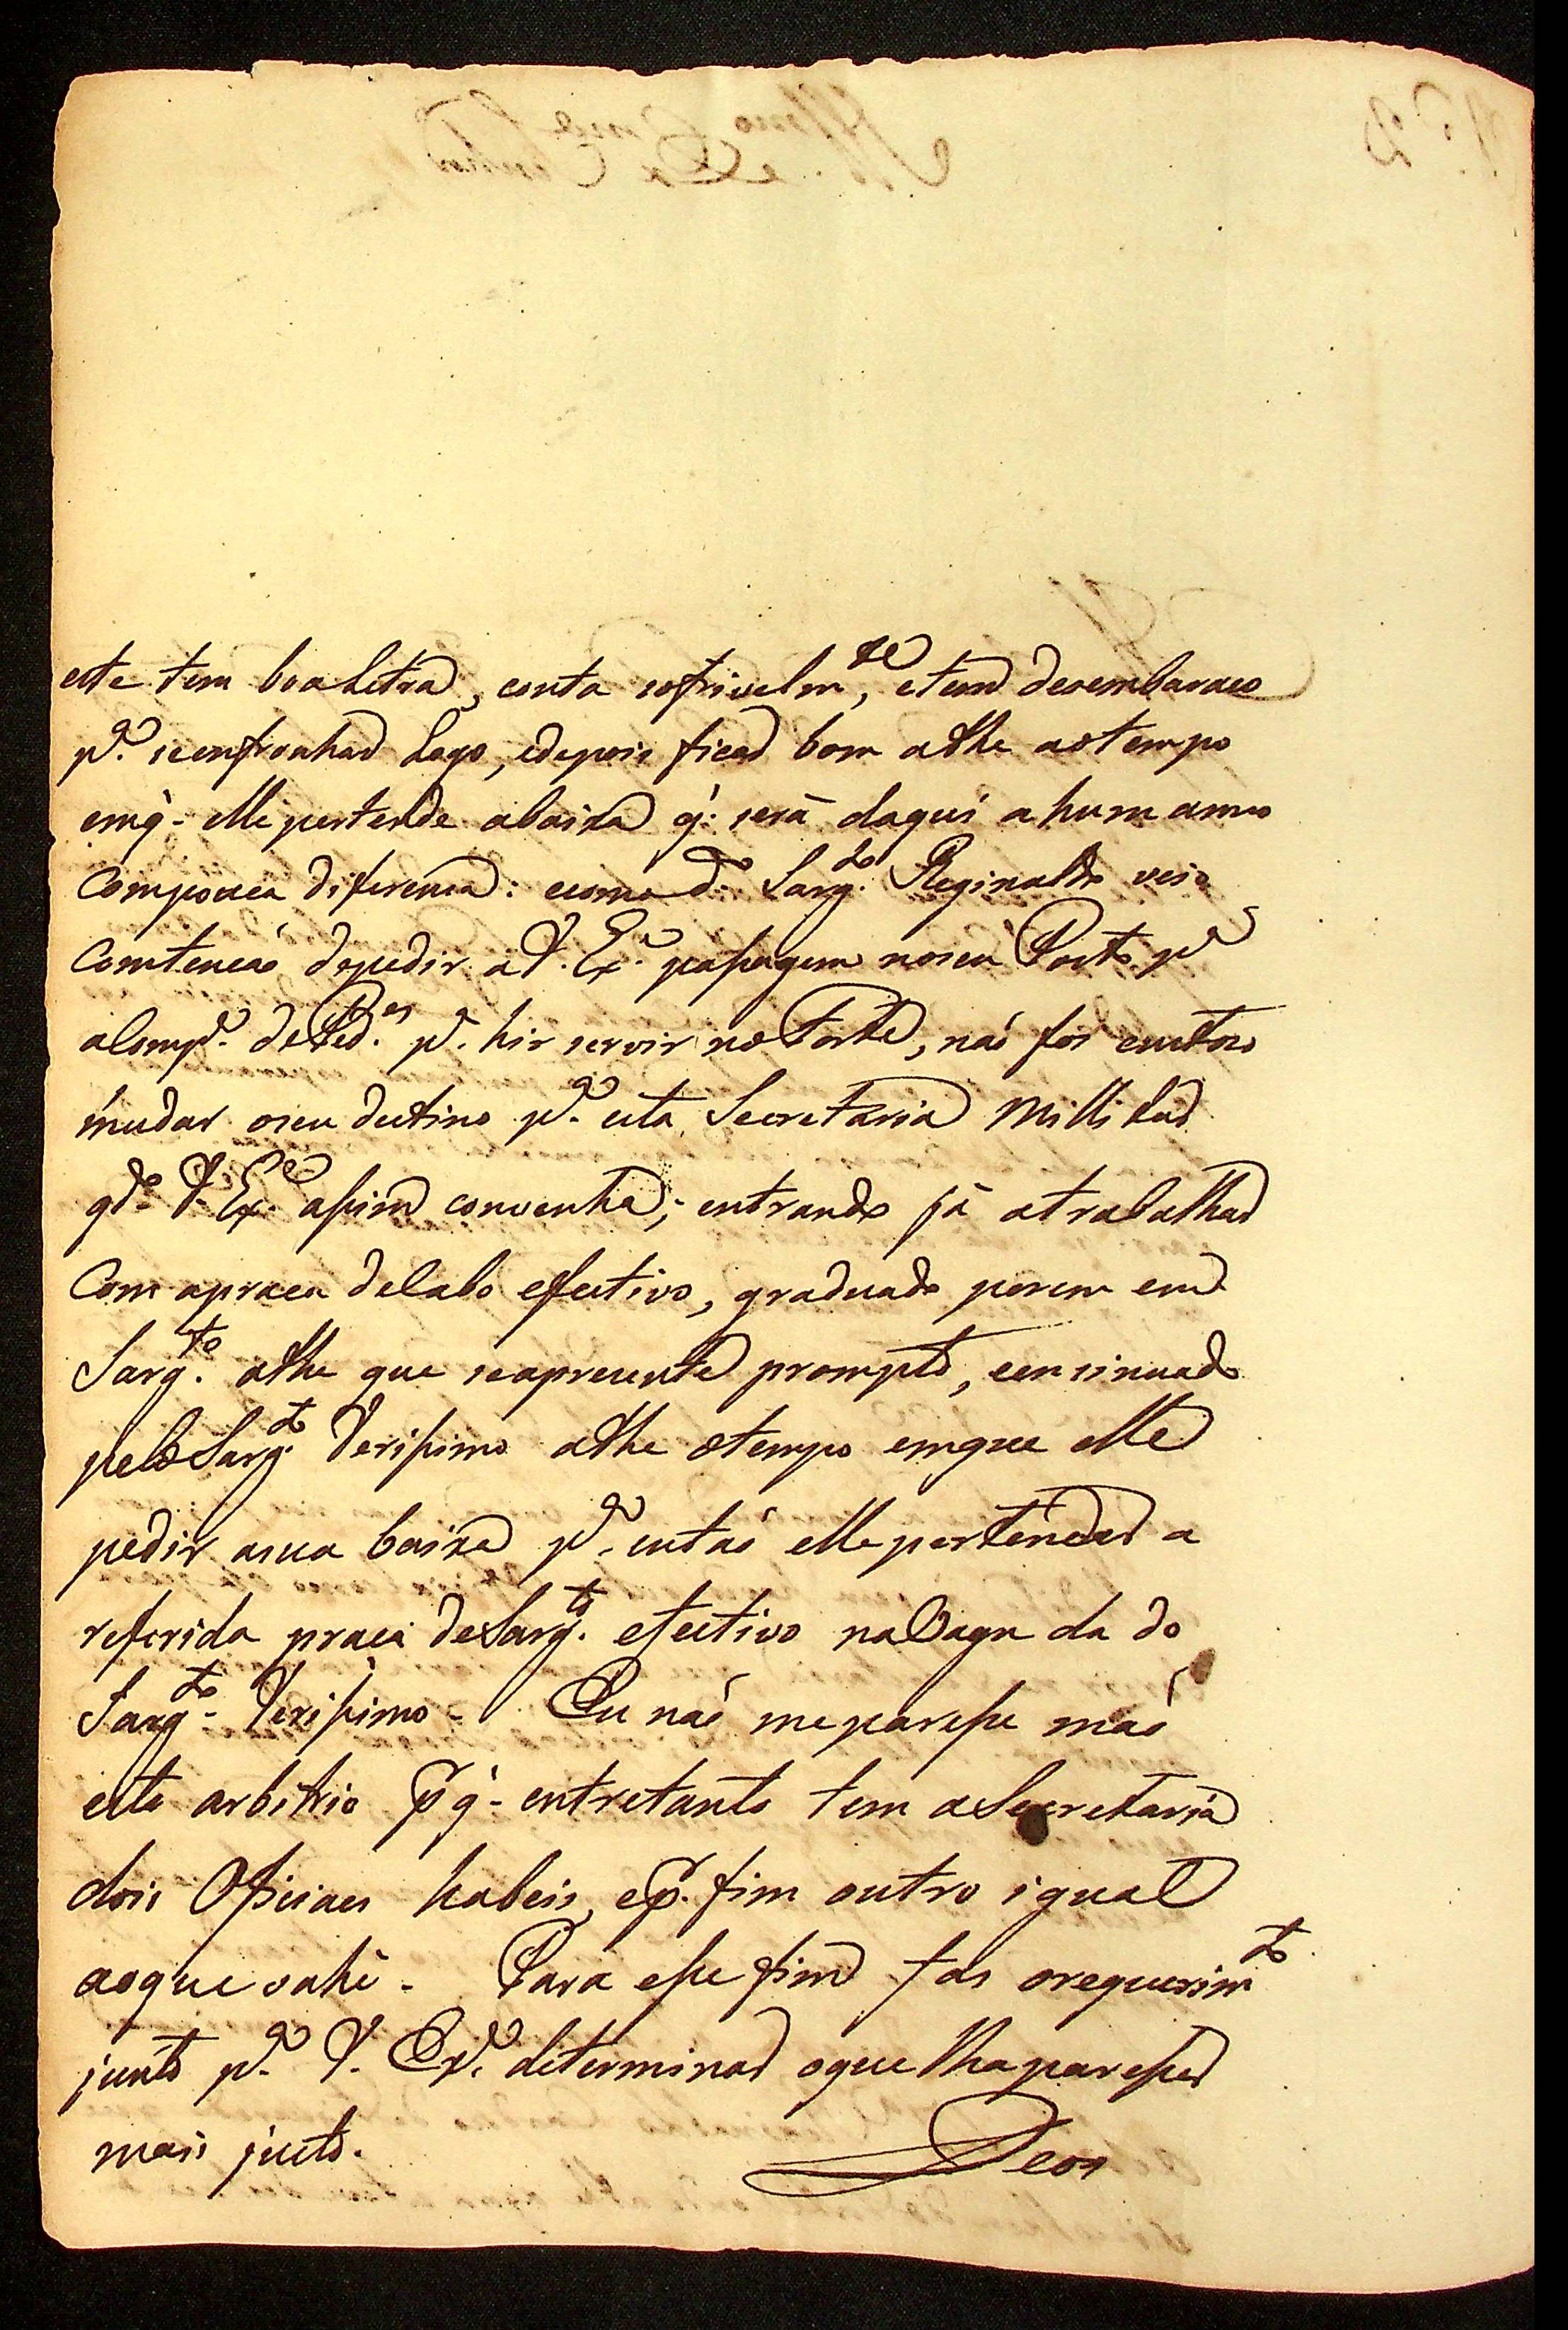 este tem boa Letra, conta sofrivelm.te, etem desembaraço
p.a se enfronhar Logo, edepois ficar bom athe ao tempo
emq̀ elle pertende abaixa q̀ será daqui a hum anno
Compouca diferença: ecomo d.o Sarg.to Reginaldo veio
Comtenção depedir a V. Ex.a pasagem noseu Posto p.a
aComp.a de Ped.es p.a hir servir no Forte, não foi custozo
mudar oseu destino p.a esta Secretaria Millitar
qd.o V. Ex.a asim convenha; entrando já atrabalhar
Com apraça deCabo efectivo, graduado porem em
Sarg.to athe que seapresente prompto, eensinuado
pelo Sarg.to Verisimo athe otempo emque elle
pedir asua baixa p.a então elle pertencer a
referida praça deSarg.to efectivo naVaga da do
Sarg.to Verisimo - Eu não meparese máo
este arbitrio p.r q̀ entretanto tem aSecretaria
dois Oficiaes habeis, ep.r fim outro igual
aoque sahe - Para ese fim fas orequerim.to
junto p.a V. Ex.a determinar oque lhe pareser
mais justo.
Deos